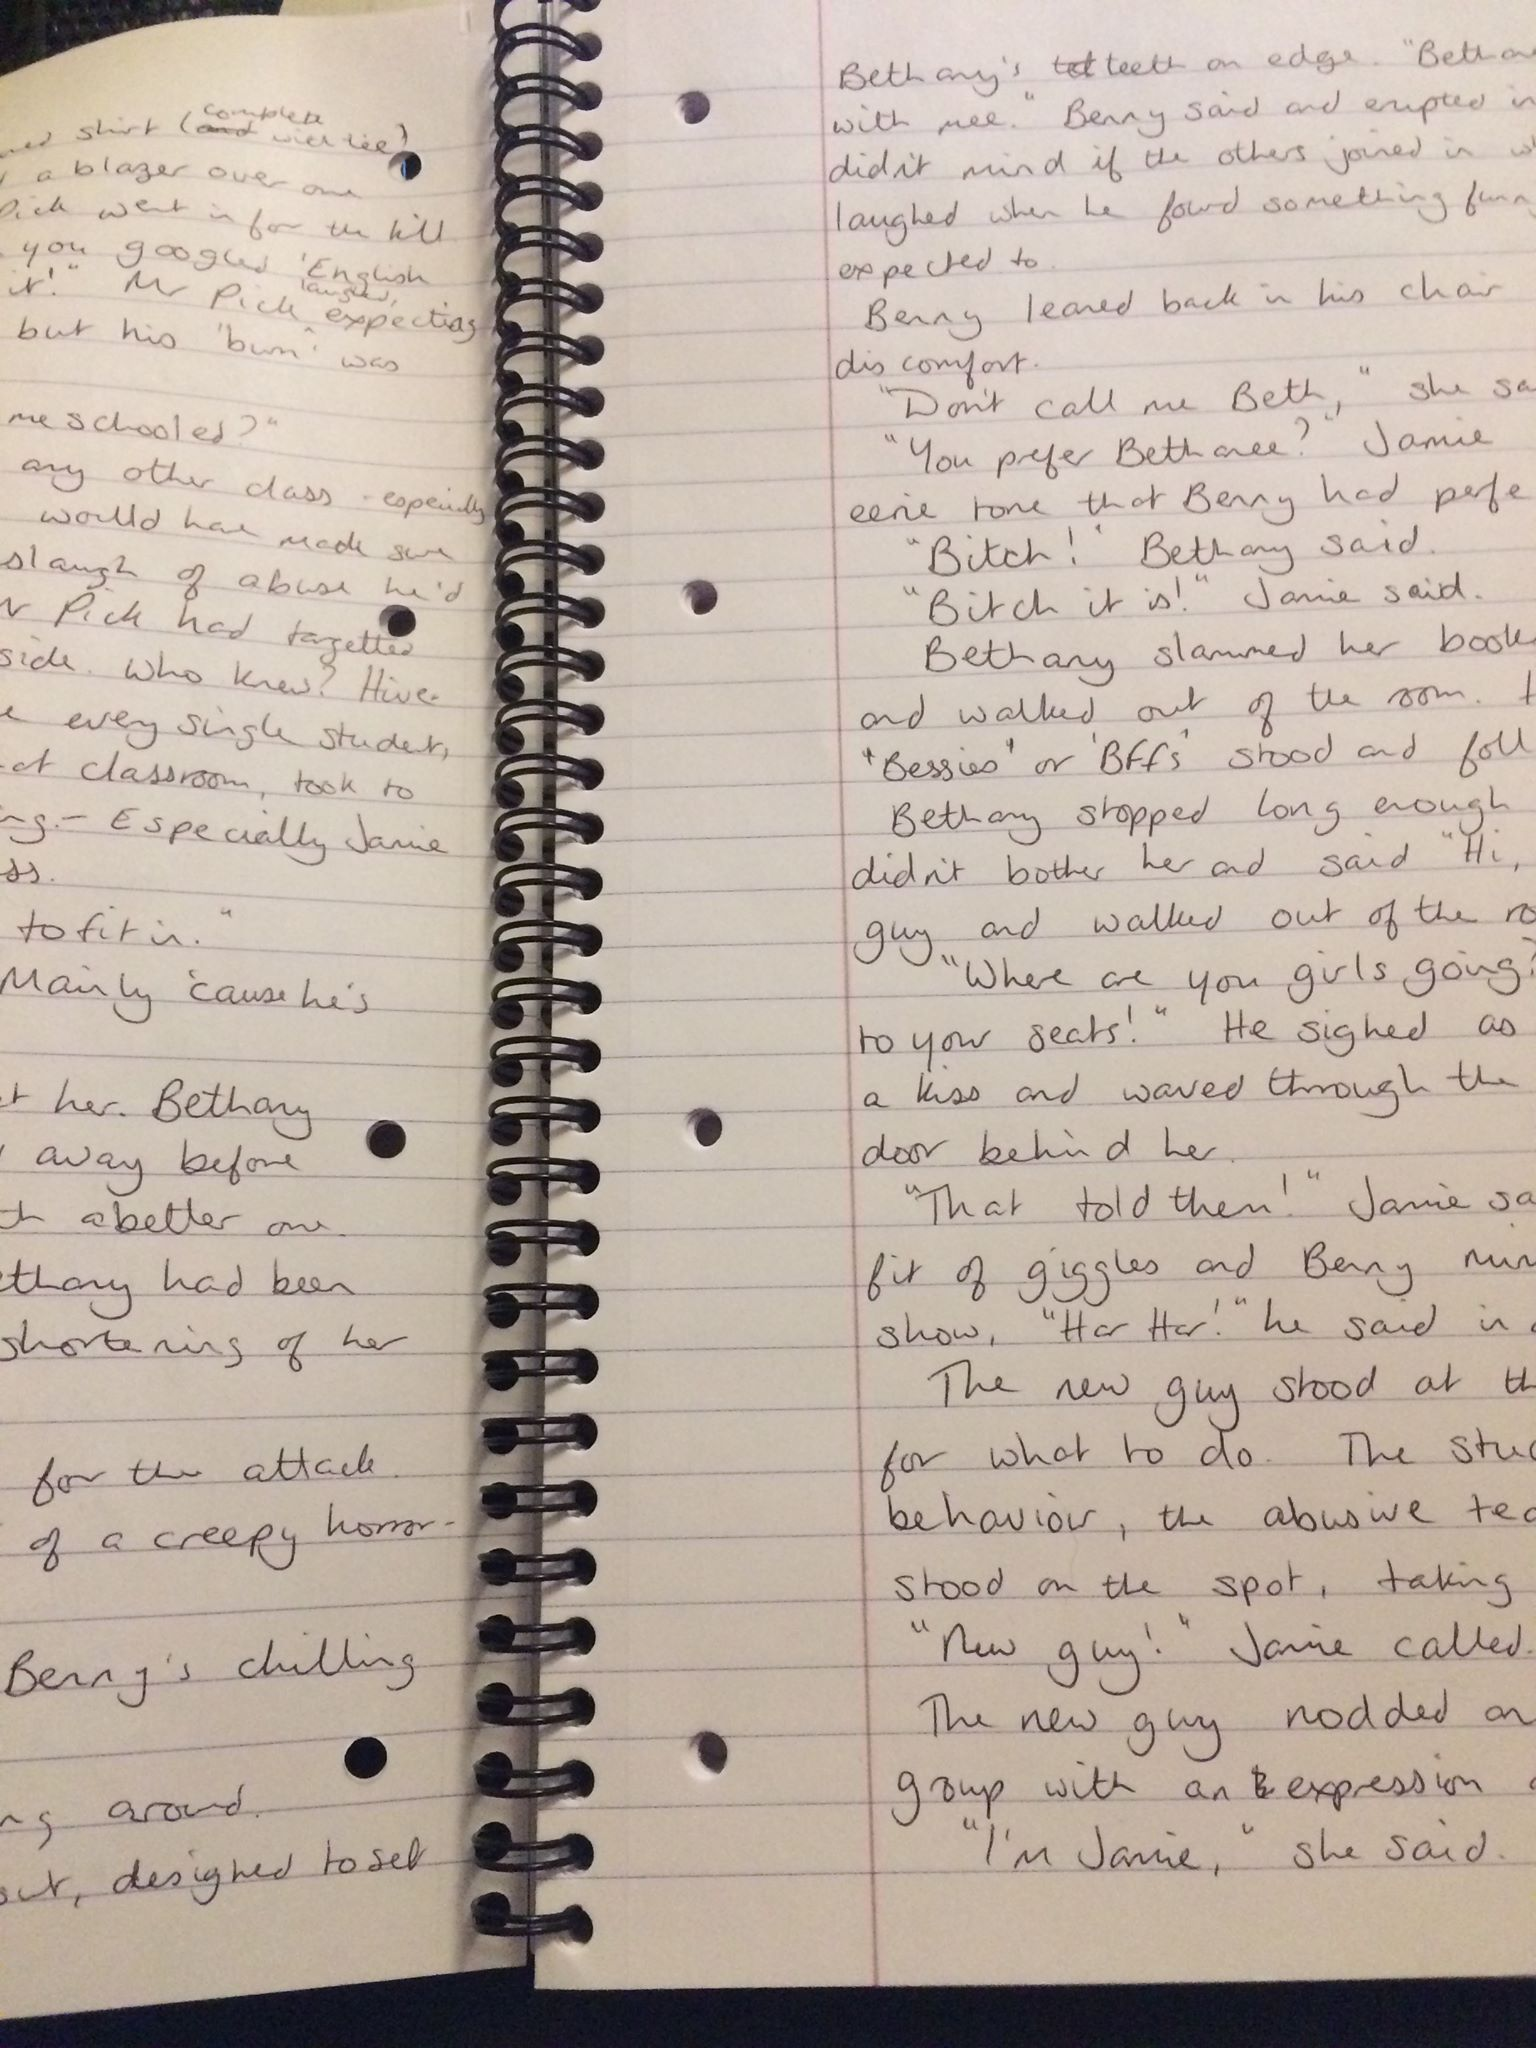 shirt (and complete with tie)
a blazer over one
Pick went in for the kill
you googled 'English
it!" Mr Pick laughed, expecting
but his 'burn' was
me schooled?"
any other class - especially
would have made sure
slaugh of abuse he'd
Pick had targetted
side. Who knew? Hive-
every single student,
classroom, took to
ng. - Especially Jamie
ss.
to fit in."
Mainly 'cause he's
her. Bethany
away before
a better one.
ethany had been
shortening of her
for the attack.
of a creepy horror-
Benny's chilling
ng around.
out, designed to set
Bethany's tet teeth on edge. "Bethan
with mee." Benny said and erupted in
didn't mind if the others joined in w
laughed when he found something funn
expected to.
Benny leaned back in his chair
discomfort.
"Don't call me Beth," she sa
"You prefer Bethanee?" Jamie
eerie tone that Benny had perfe
"Bitch!" Bethany said.
"Bitch it is!" Jamie said.
Bethany slammed her book
and walked out of the room.
'Bessies' or 'BFFs' stood and foll
Bethany stopped long enough
didn't bother her and said "Hi,
guy and walked out of the ro
"Where are you girls going?
to your seats!" He sighed as
a kiss and waved through the
door behind her.
"That told them!" Jamie sa
fit of giggles and Benny mim
show, "Har Har!" he said in
The new guy stood at th
for what to do. The stud
behavior, the abusive tea
stood on the spot, taking
"New guy!" Jamie called.
The new guy nodded an
group with an expression
"I'm Jamie," she said.